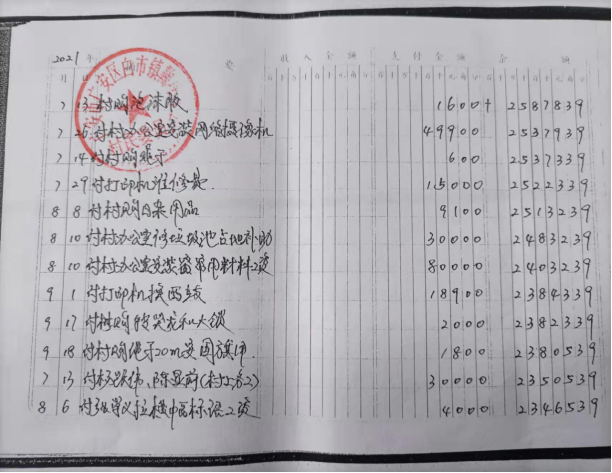 2021 年
收入金额 支付金额 余额
7 13 付村购泡沫板 1600 + 2587839
7 26 付村办公室安装网络摄像机 49900 2537939
7 14 付村购绳子 600 2537339
7 29 付打印机维修费 15000 2522339
8 8 付村购日杂用品 9100 2513239
8 10 付村办公室修垃圾池占地补助 30000 2483239
8 10 付村办公室安装窗帘用材料2费 80000 2403239
9 1 付打印机换硒鼓 18900 2384339
9 17 付村购 和大锁 2000 2382339
9 18 付村购绳子20m安国旗 1800 2380539
7 13 付 30000 2350539
8 6 付 义拉横巾标语2费 4000 2346539
广安区白市镇 村民委员会